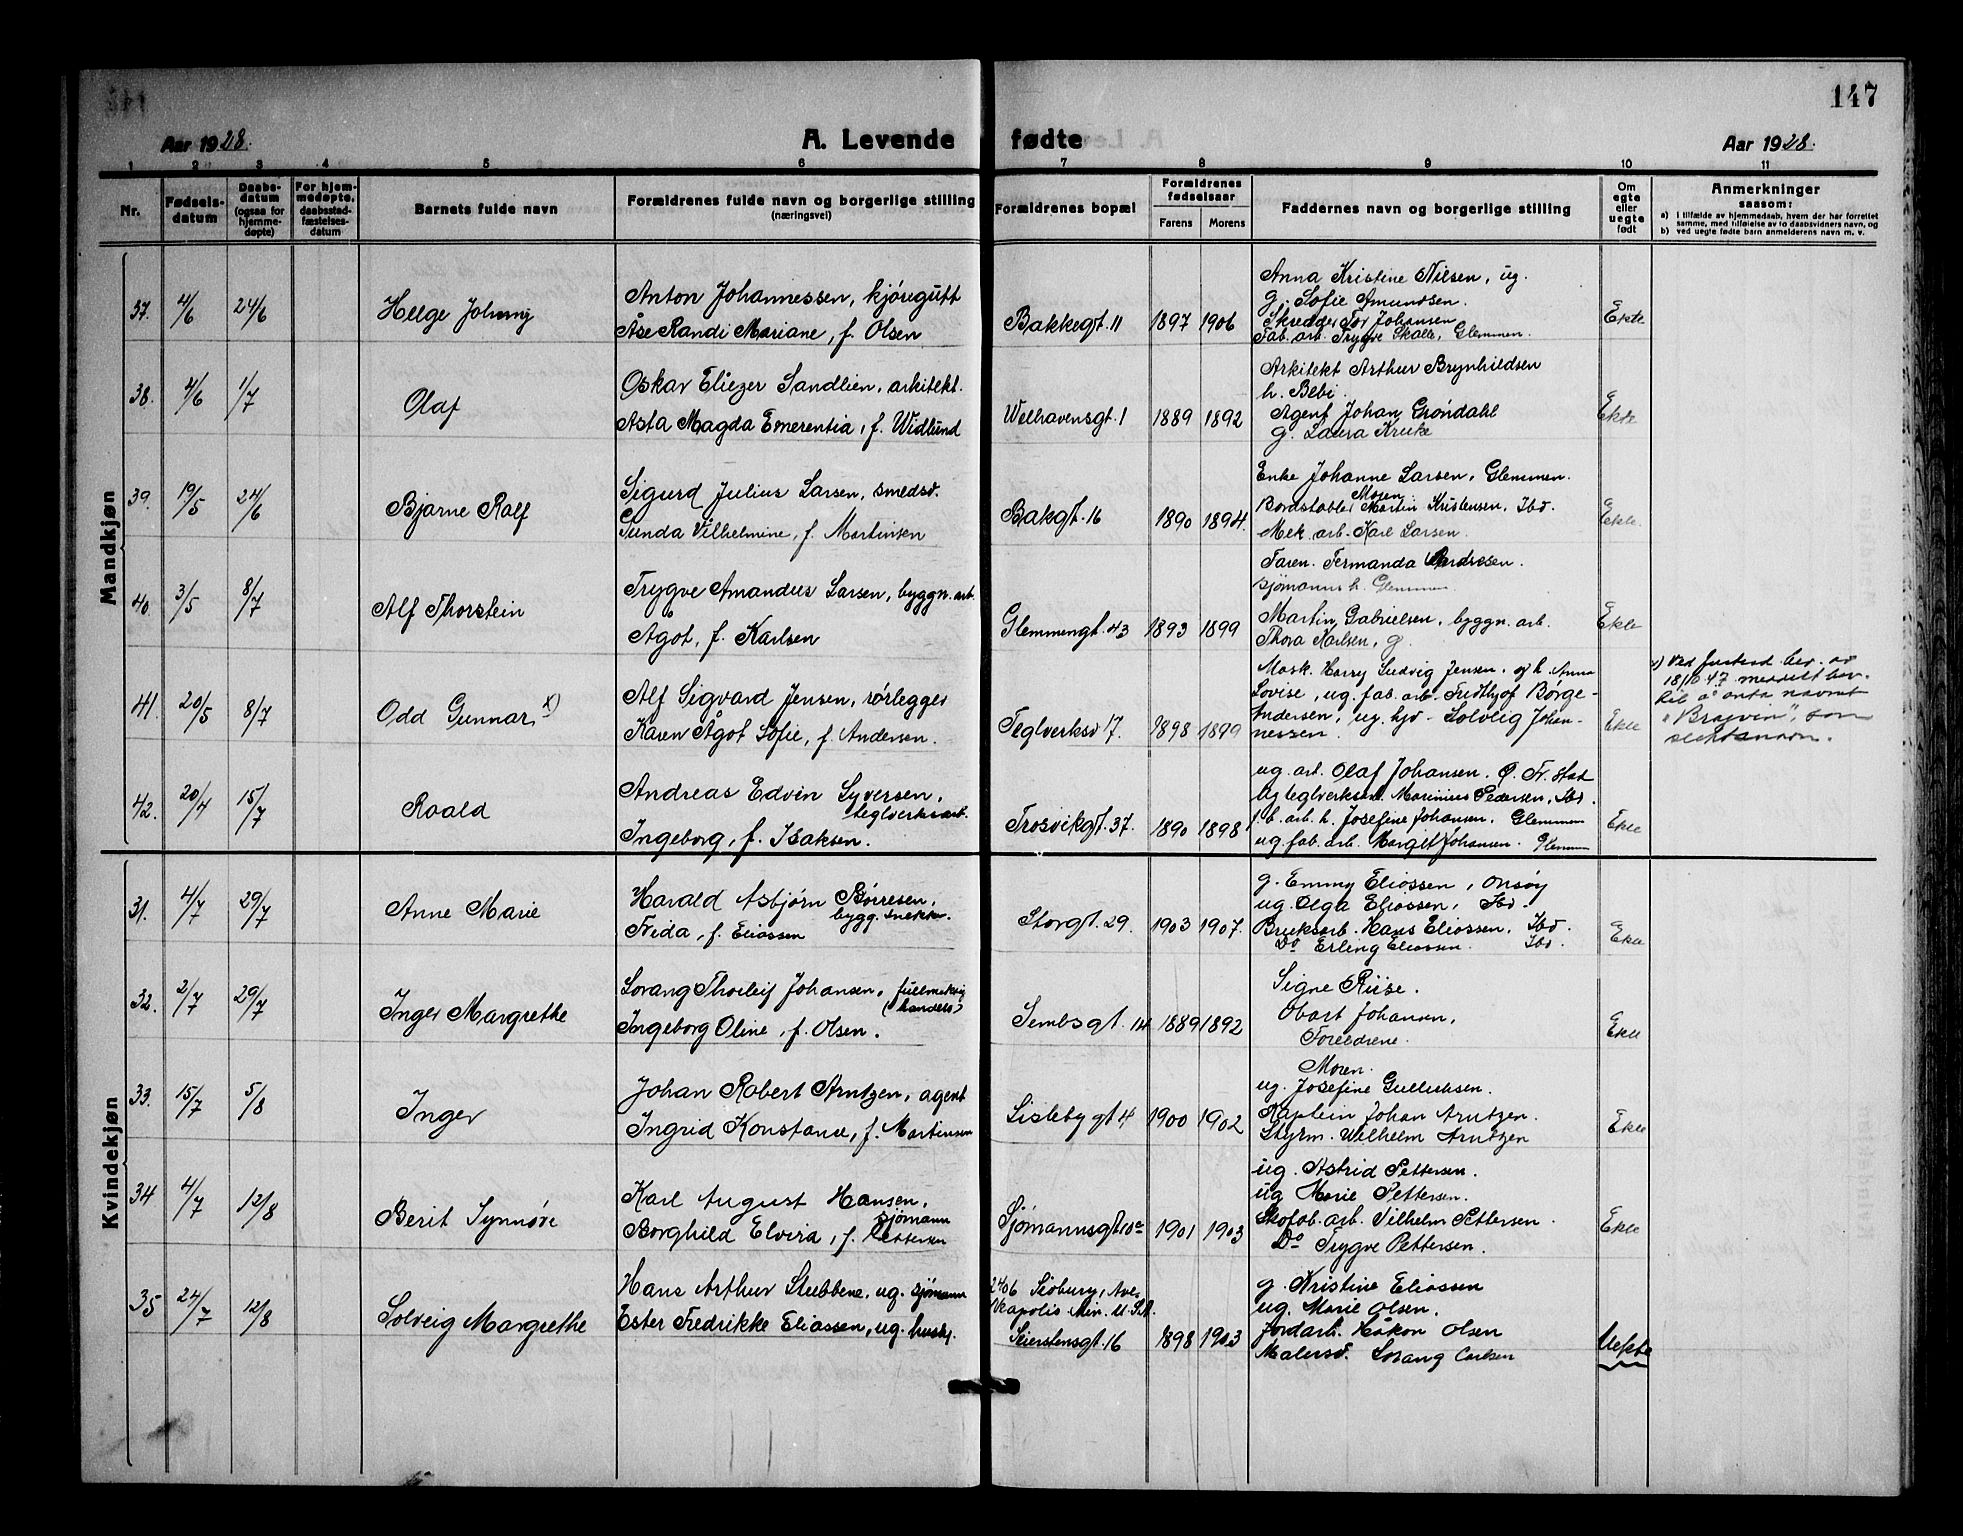 147
Aar 1928.
A. Levende fødte
Aar 1928.
1 2 3 4 5 6 7 8 9 10 11
Nr.
Fødselsdatum
Daabsdatum (ogsaa for hjemmedøpte)
For hjemmedøpte, daabsstadfæstelsesdatum
Barnets fulde navn
Forældrenes fulde navn og borgerlige stilling (næringsvei)
Forældrenes bopæl
Forældrenes fødselsaar
Farens Morens
Faddernes navn og borgerlige stilling
Om egte eller uegte født
Anmerkninger saasom:
a) i tilfælde av hjemmedaab, hvem der har forrettet samme, med tilføielse av to daabsvidners navn, og
b) ved uegte fødte barn anmelderens navn m. v.
Mandkjøn
37. 4/6 24/6 Helge Johnny
Anton Johannessen, kjøregutt
Åse Randi Mariane, f. Olsen
Bakkegt. 11 1897 1906
Anna Kristine Nilsen, ug.
g. Sofie Amundsen.
Skredder Tor Johansen
Fab. arb. Trygve Skolle, Glemmen.
Ekte
38. 4/6 1/7 Olaf
Oskar Eliezer Sandlien, arkitekt.
Asta Magda Emerentia, f. Widlund
Welhavensgt. 1 1889 1892
Arkitekt Arthur Brynhildsen
h. Bebi.
Agent Johan Grøndahl
g. Laura Kruke
Ekte
39. 19/5 24/6 Bjarne Ralf
Sigurd Julius Larsen, smedsv.
Gunda Vilhelmine, f. Martinsen
Bakgt. 16 1890 1894.
Enke Johanne Larsen, Glemmen.
Moren.
Bordstabler Martin Kristensen, Ibd.
Mek. arb. Karl Larsen.
Ekte.
40. 3/5 8/7 Alf Thorstein
Trygve Amandus Larsen, byggn. arb.
Ågot, f. Karlsen
Glemmengt. 43 1893 1899
Faren. Fermanda Andresen.
sjømanns h. Glemmen
Martin Gabrielsen, byggn. arb.
Thora Karlsen, g.
Ekte
41. 20/5 8/7 Odd Gunnar x)
Alf Sigvard Jensen, rørlegger
Karen Ågot Sofie, f. Andersen.
Teglverksv 17. 1898 1899
Mask. Harry Ludvig Jensen, og h. Anna
Lovise, ug. fab. arb. Fridthjof Børge-
Andersen, ug. hjv. Solveig Johan-
nessen.
Ekte
x) Ved justisd. bev. av
18/10 47 meddelt bev.
til å anta navnet
"Brajvin", som
slektsnavn.
42. 20/4 15/7 Roald
Andreas Edvin Syversen,
teglverksarb.
Ingeborg, f. Isaksen.
Trosvikgt. 37. 1890 1898
ug. arb. Olaf Johansen. Ø. Fr. stad
Ug teglverksarb. Marinius Pedersen, Ibd.
f. b. arb. h. Josefine Johansen. Glemmen
ug. fab. arb. Margit Johansen. Glemmen
Ekte
Kvindekjøn
31. 4/7 29/7 Anne Marie
Harald Asbjørn Børresen,
bygg. snekker.
Frida, f. Eliassen
Storgt. 29. 1903 1907.
g. Emmy Eliassen, Onsøy
ug. Olga Eliassen, Ibd.
Bruksarb. Hans Eliassen, Ibd.
Do Erling Eliassen. Ibd.
Ekte
32. 2/7 29/7 Inger Margrethe
Lorang Thorleif Johansen, fullmektig
(handels)
Ingeborg Oline, f. Olsen.
Sembsgt. 14 1889 1892
Signe Riise.
Obart Johansen,
Foreldrene.
Ekte
33. 15/7 5/8 Inger
Johan Robert Arntzen, agent
Ingrid Konstanse, f. Martinsen
Lislebygt 4 1900 1902
Moren.
ug. Josefine Gulliksen.
Kaptein Johan Arntzen.
Styrm. Wilhelm Arntzen
Ekte
34 4/7 12/8 Berit Synnøve
Karl August Hansen,
sjømann
Borghild Elvira, f. Pettersen
Sjømannsgt 10a 1901 1903
ug. Astrid Pettersen.
ug Marie Pettersen.
Skofab. arb. Vilhelm Pettersen.
Do Trygve Pettersen.
Ekte
35 24/7 12/8 Solveig Margrethe
Hans Arthur Stubbene, ug. sjømann
Ester Fredrikke Eliassen, ug. hushj.
2406 Seabury, Ave.
Neapolis Min. U.S.A.
Seierstensgt. 16 1898 1903
g. Kristine Eliassen
ug. Marie Olsen.
Jordarb. Håkon Olsen
Malersv. Lorang Carlsen
Uekte